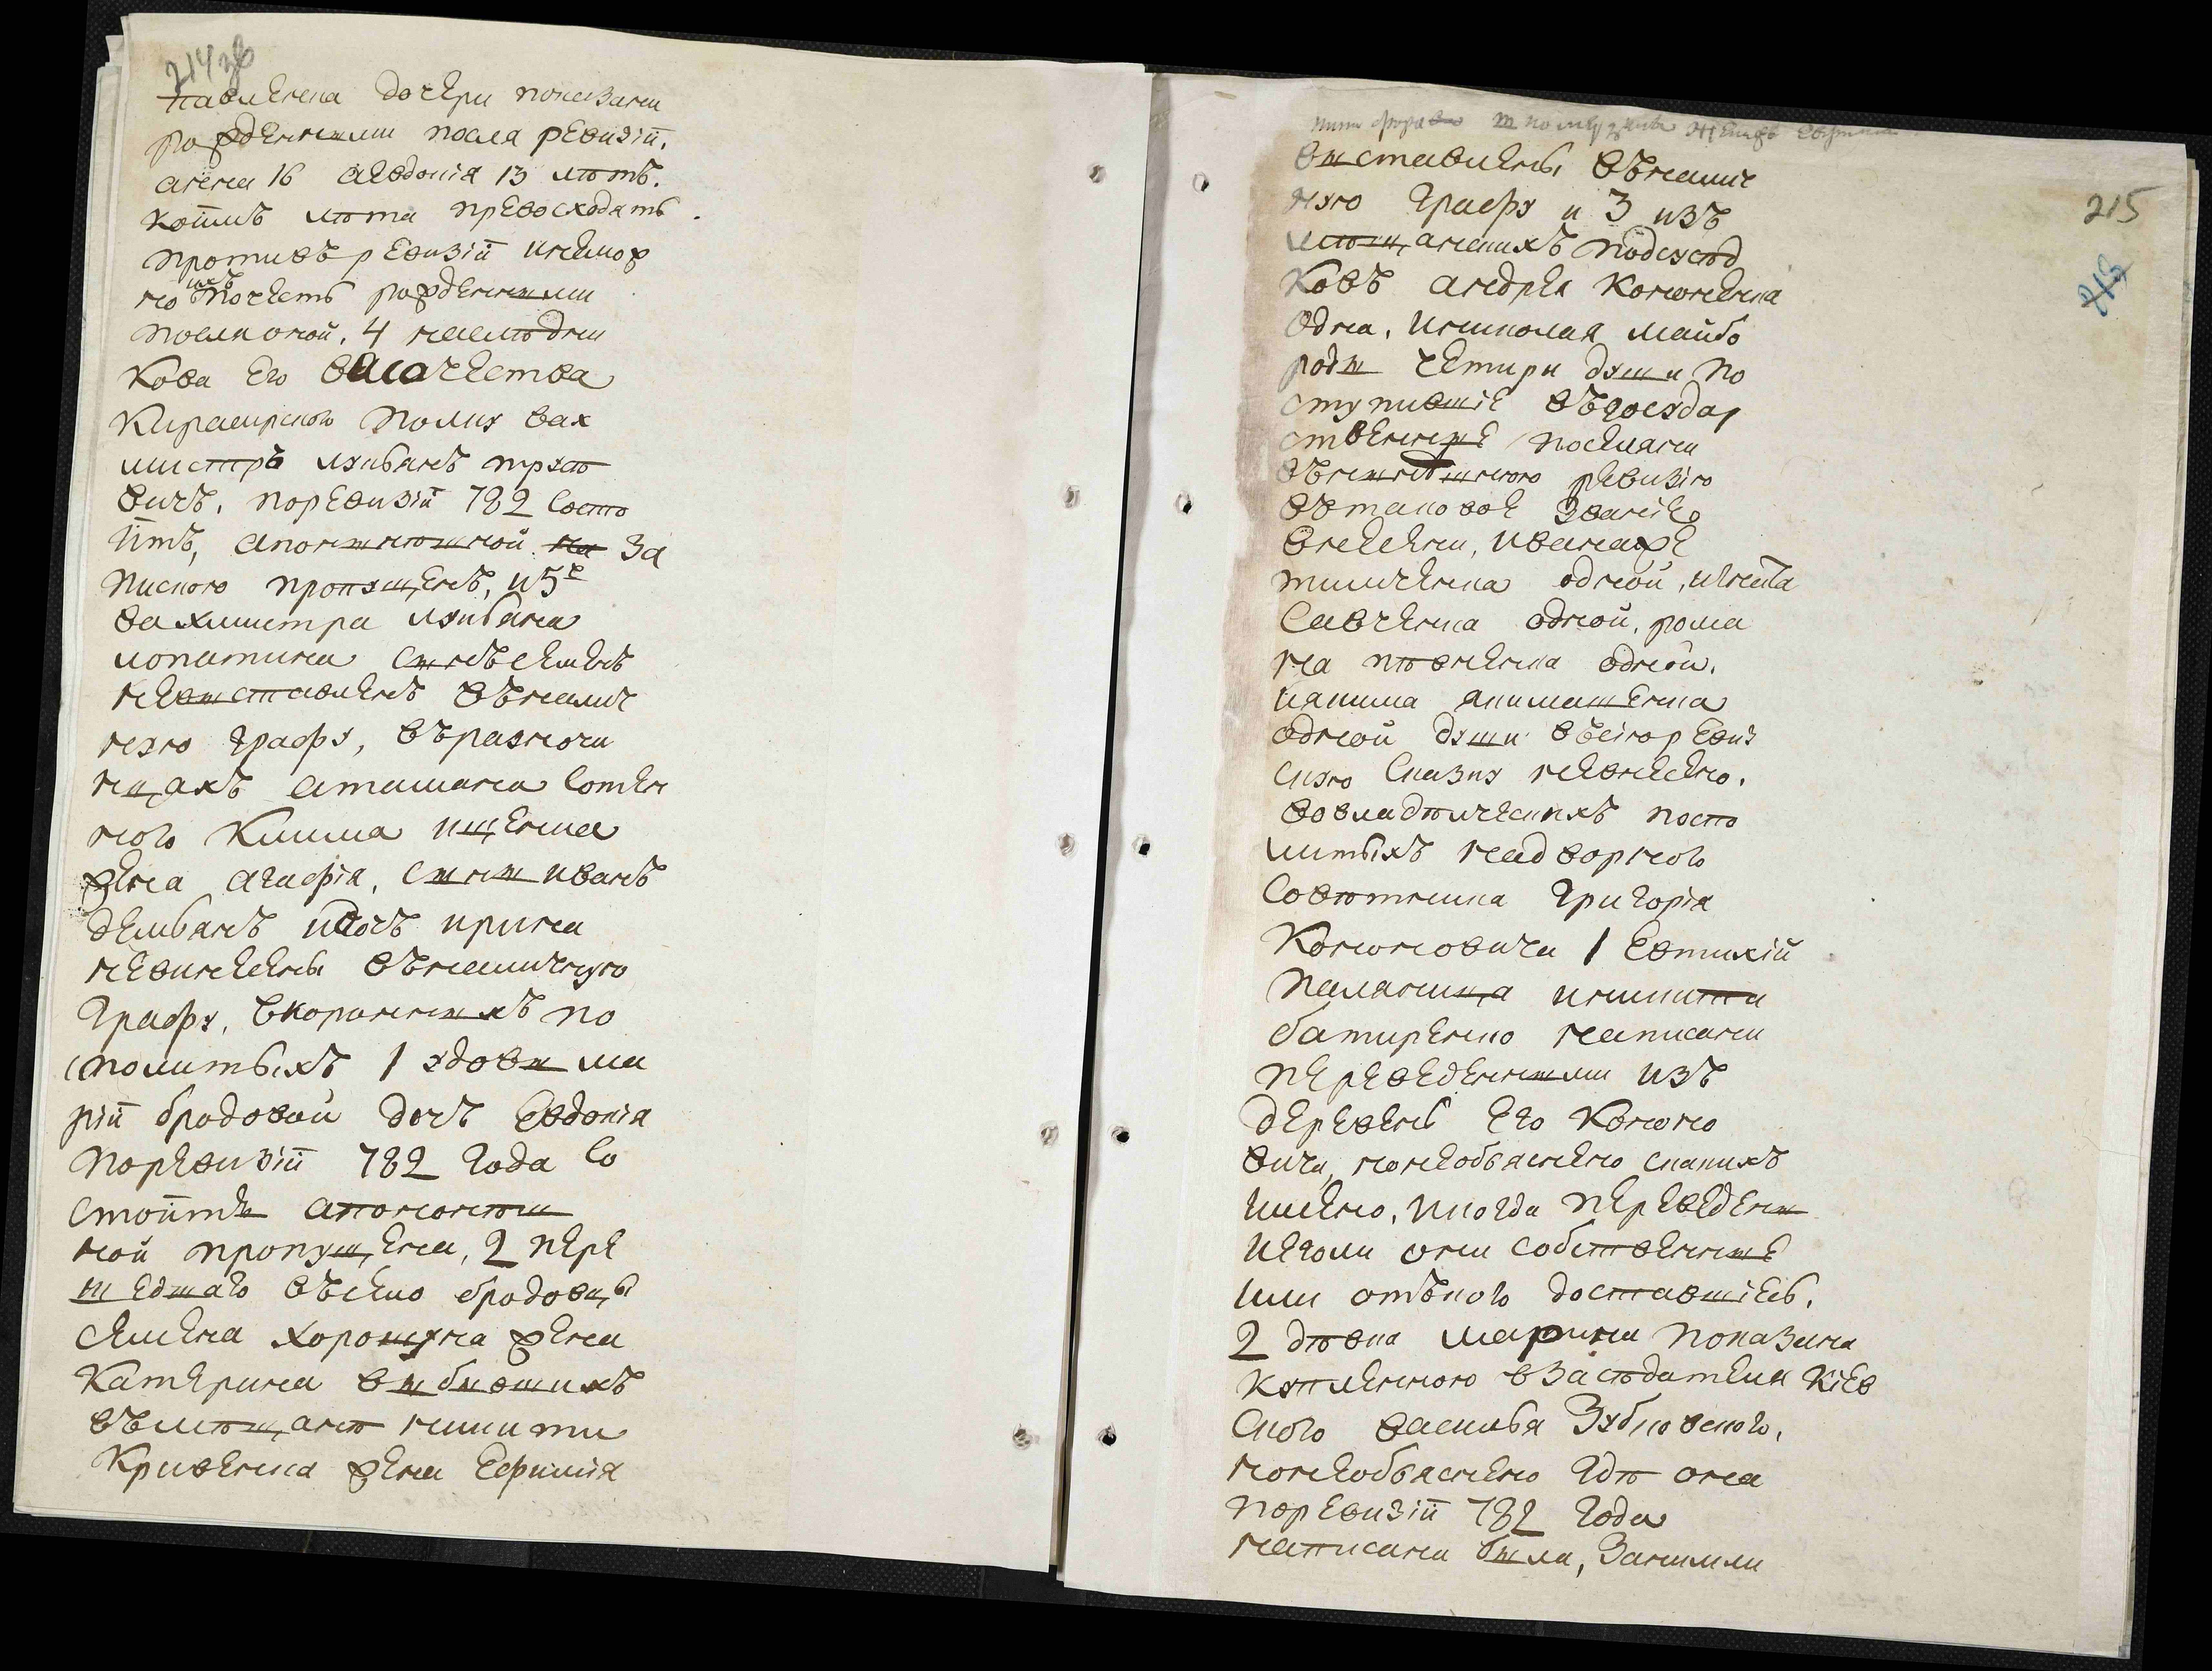 214 зв
павленка дочери показани
рожденними после ревизіи,
анна 16 авдотія 13 летъ,
коимъ лета превосходятъ
противъ ревизіи инемож
но ихъ почесть рожденними
после оной, 4 наследни
кова Его височества
Кирасирского полку вах
мистръ лукьянъ труше
вичъ, поревизіи 782 состо
итъ, апонинешной за
пискою пропущенъ, и 5е
вахмистра лукьяна
лопатина синъ семенъ
невиставленъ въналич
ную графу, въразночи
нцахъ атамана сотен
ного Клима ищенка
жена агафія, сини иванъ
демьянъ идочъ ирина
невнесены въналичную
графу, вкоронныхъ по
сполитыхъ 1 удови ма
ріи бродовой дочъ Евдокія
поревизіи 782 года со
стоитъ апонинеш
ной пропущена, 2 пере
шедшаго въсело бродовцы
семена хорошуна жена
катерина вибившихъ
въмещане никити
Кривенка жена Ефимія
215
виставлены въналич
ную графу и 3 изъ
мещанскихъ подсусед
ковъ андрея Кононенка
одна, иниколая майбо
роди четири души по
ступившіе въгосудар
ственніе поселяни
въниншную ревизію
вътаковое званіе
внесени, иванаже
тимченка одной, игната
Савченка одной, рома
на певненка одной,
якима акимашенка
одной души въсію ревиз
скую сказку невнесено,
вовладелческихъ поспо
литыхъ надворного
Советника григорія
Кононовича 1 Евтихій
паланица иникита
батиренко написани
переведенними изъ
деревень Его Кононо
вича, нонеобъяснено скакихъ
имено, икогда переведени
иеголи они собственніе
или откого доставшіесь,
2 девка марина показана
купленною взаседателя Кіев
ского василья Зубковского,
нонеобъяснено где она
поревизіи 782 года
написана била, Занимли